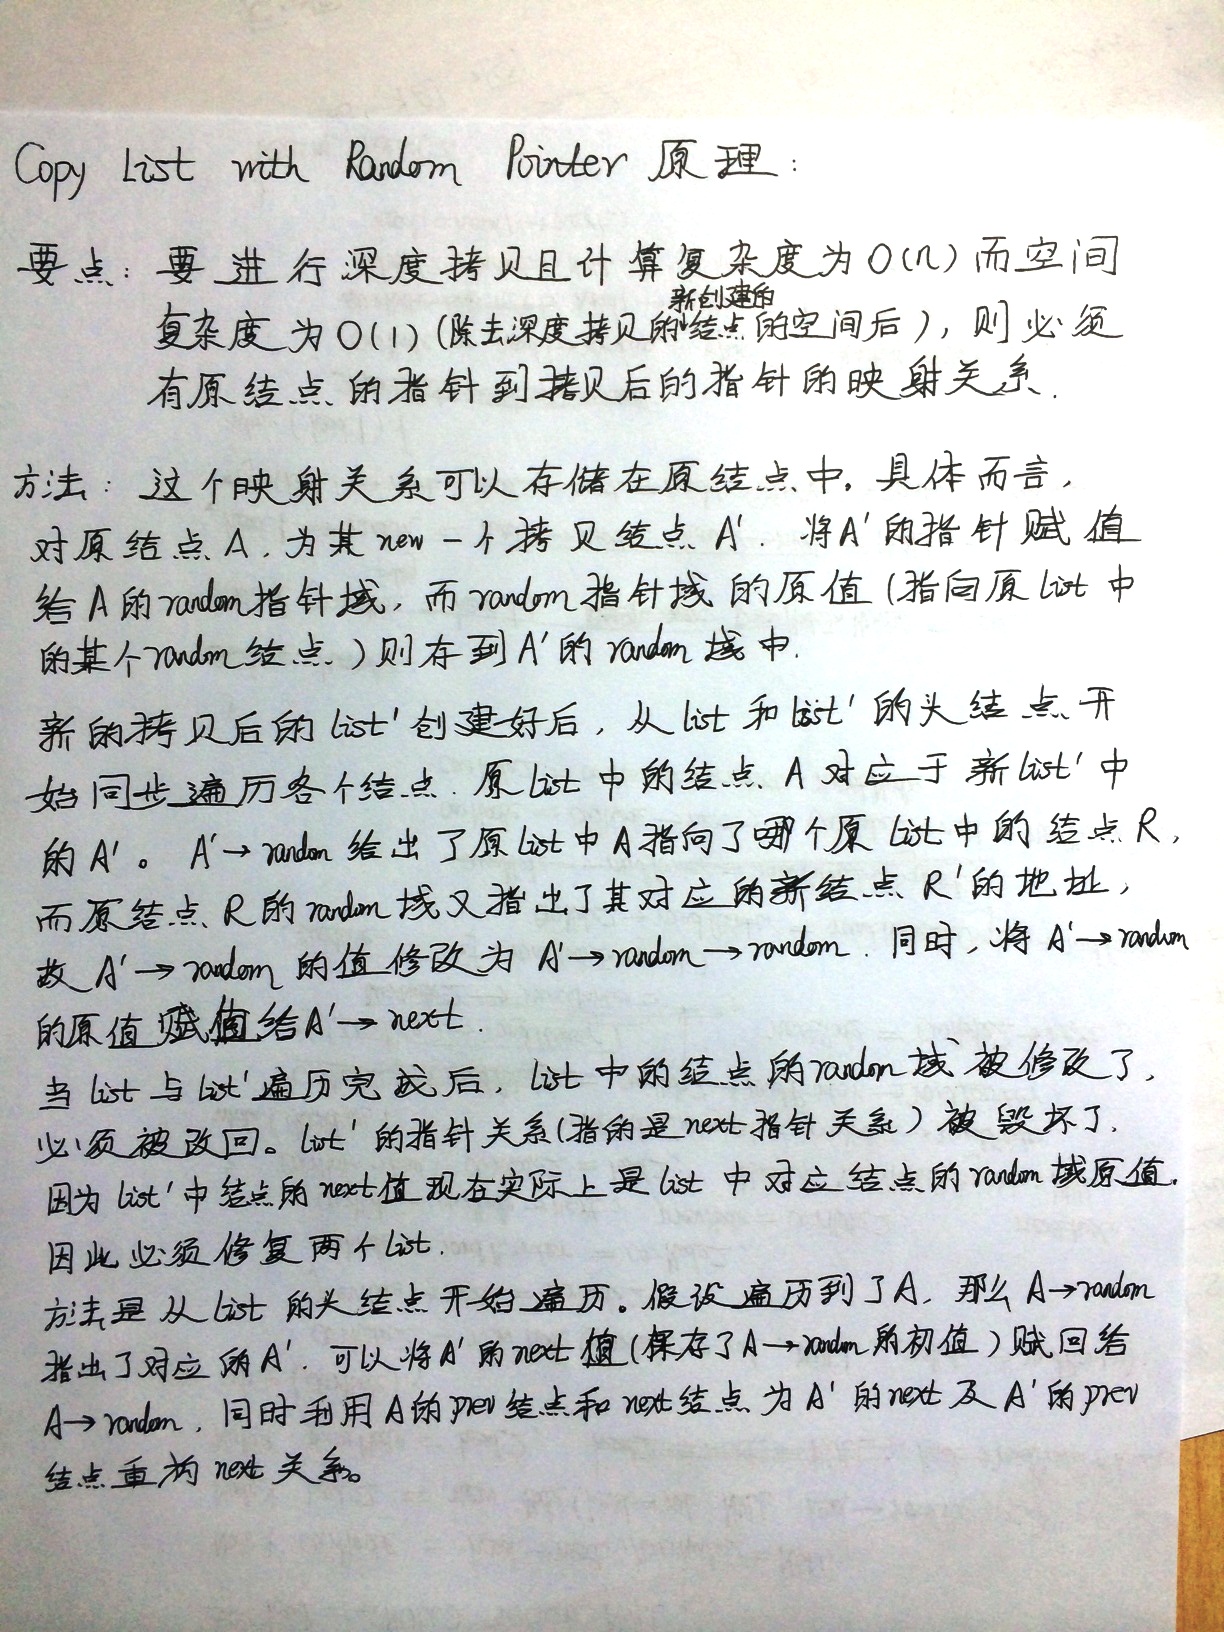 Copy List with Random Pointer 原理：
要点：要进行深度拷贝且计算复杂度为O(n)而空间
复杂度为O(1)(除去深度拷贝的新创建的结点的空间后)，则必须
有原结点的指针到拷贝后的指针的映射关系.
方法：这个映射关系可以存储在原结点中。具体而言，
对原结点A，为其new一个拷贝结点A'. 将A'的指针赋值
给A的random指针域，而random指针域的原值(指向原list中
的某个random结点)则存到A'的random域中.
新的拷贝后的list'创建好后，从list和list'的头结点开
始同步遍历各个结点. 原list中的结点A对应于新list'中
的A'。A'→random给出了原list中A指向了哪个原list中的结点R，
而原结点R的random域又指出了其对应的新结点R'的地址，
故A'→random的值修改为A'→random→random. 同时，将A'→random
的原值赋值给A'→next.
当list与list'遍历完成后，list中的结点的random域被修改了，
必须被改回。list'的指针关系(指的是next指针关系)被毁坏了，
因为list'中结点的next值现在实际上是list中对应结点的random域原值，
因此必须修复两个list.
方法是从list的头结点开始遍历。假设遍历到了A，那么A→random
指出了对应的A'. 可以将A'的next值(保存了A→random的初值)赋回给
A→random. 同时利用A的prev结点和next结点为A'的next及A'的prev
结点重构next关系。